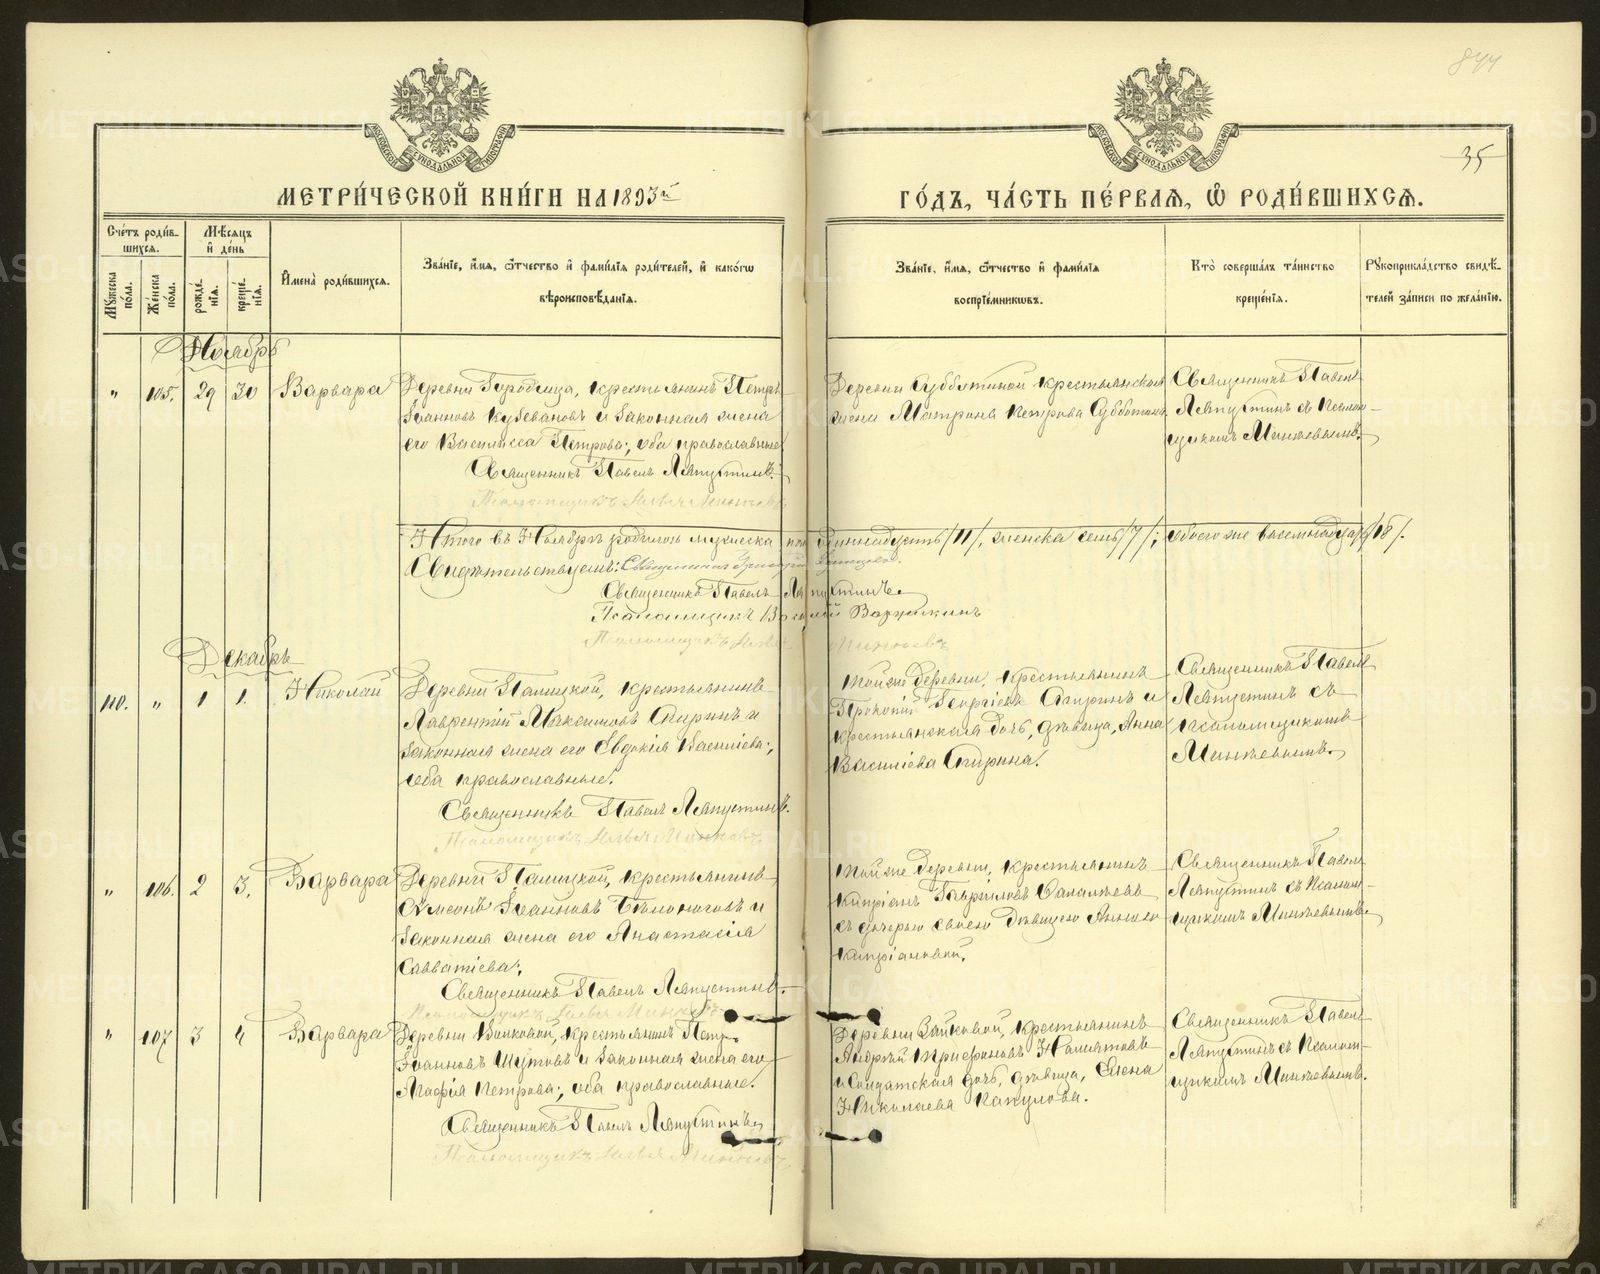 844
35
МЕТРИ́ЧЕСКОЙ КНИ́ГИ НА 1893й
ГО́ДЪ, ЧА́СТЬ ПЕ́РВАЯ, Ѡ҆ РОДИ́ВШИХСЯ.
Сче́тъ роди́вшихся.
Мꙋ́жеска по́ла.
Же́нска по́ла.
Мѣ́сяцъ и҆ де́нь
рожде́нїя.
креще́нїя.
И҆мена̀ роди́вшихся.
Зва́нїе, и҆́мя, ѻ҆́тчество и҆ фами́лїя роди́телей, и҆ како́гѡ
вѣроисповѣ́данїя.
Зва́нїе, и҆́мя, ѻ҆́тчество и҆ фами́лїя
воспрїе́мникѡвъ.
Кто̀ соверша́лъ та́инство
креще́нїя.
Рꙋкоприкла́дство свидѣ́телей за́писи по жела́нїю.
Ноябрь
" 105. 29 30 Варвара
Деревни Городища, крестьянинъ Петръ
Іоанновъ Кузевановъ и законная жена
его Василисса Петрова; оба православные
Священникъ Павелъ Ляпустинъ.
Псаломщикъ Илья Минѣевъ
Деревни Субботиной крестьянская
жена Матрона Петрова Субботина
Священникъ Павелъ
Ляпустинъ съ Псалом-
щикомъ Минѣевымъ.
Итого въ Ноябрѣ родилось мужеска пола одиннадцать /11/, женска семь /7/; обоего же восемнадцать /18/.
Свидѣтельствуемъ: Священникъ Григорій
Священникъ Павелъ Ляпустинъ.
Псаломщикъ Варушкинъ
Псаломщикъ Илья Минѣевъ
Декабрь
110. " 1 1. Николай
Деревни Палицкой, крестьянинъ
Лаврентій Максимовъ Спиринъ и
законная жена его Евдокія Васильева;
оба православные.
Священникъ Павелъ Ляпустинъ.
Псаломщикъ Илья Минѣевъ
Той же деревни, крестьянинъ
Прокопій Георгіевъ Спиринъ и
крестьянская дочь, дѣвица, Анна
Васильева Спирина.
Священникъ Павелъ
Ляпустинъ съ
Псаломщикомъ
Минѣевымъ.
" 106. 2 3. Варвара
Деревни Палицкой, крестьянинъ
Сѵмеонъ Іоанновъ Бѣлоноговъ и
законная жена его Анастасія
Савватіева;
Священникъ Павелъ Ляпустинъ.
Псаломщикъ Илья Минѣевъ
Той же деревни, крестьянинъ
Кипріанъ Гавриловъ
съ дочерью своею дѣвицею Анною
Кипріановой.
Священникъ Павелъ
Ляпустинъ съ Псалом-
щикомъ Минѣевымъ.
" 107 3 4 Варвара
Деревни Зайковой, крестьянинъ Петръ
Іоанновъ Шутовъ и законная жена его
Агафія Петрова; оба православные.
Священникъ Павелъ Ляпустинъ
Псаломщикъ Илья Минѣевъ
Деревни Зайковой, крестьянинъ
Андрей Трифоновъ
и Солдатская дочь, дѣвица, Елена
Николаева Пакулова.
Священникъ Павелъ
Ляпустинъ съ Псалом-
щикомъ Минѣевымъ.
METRIKI.GASO-URAL.RU